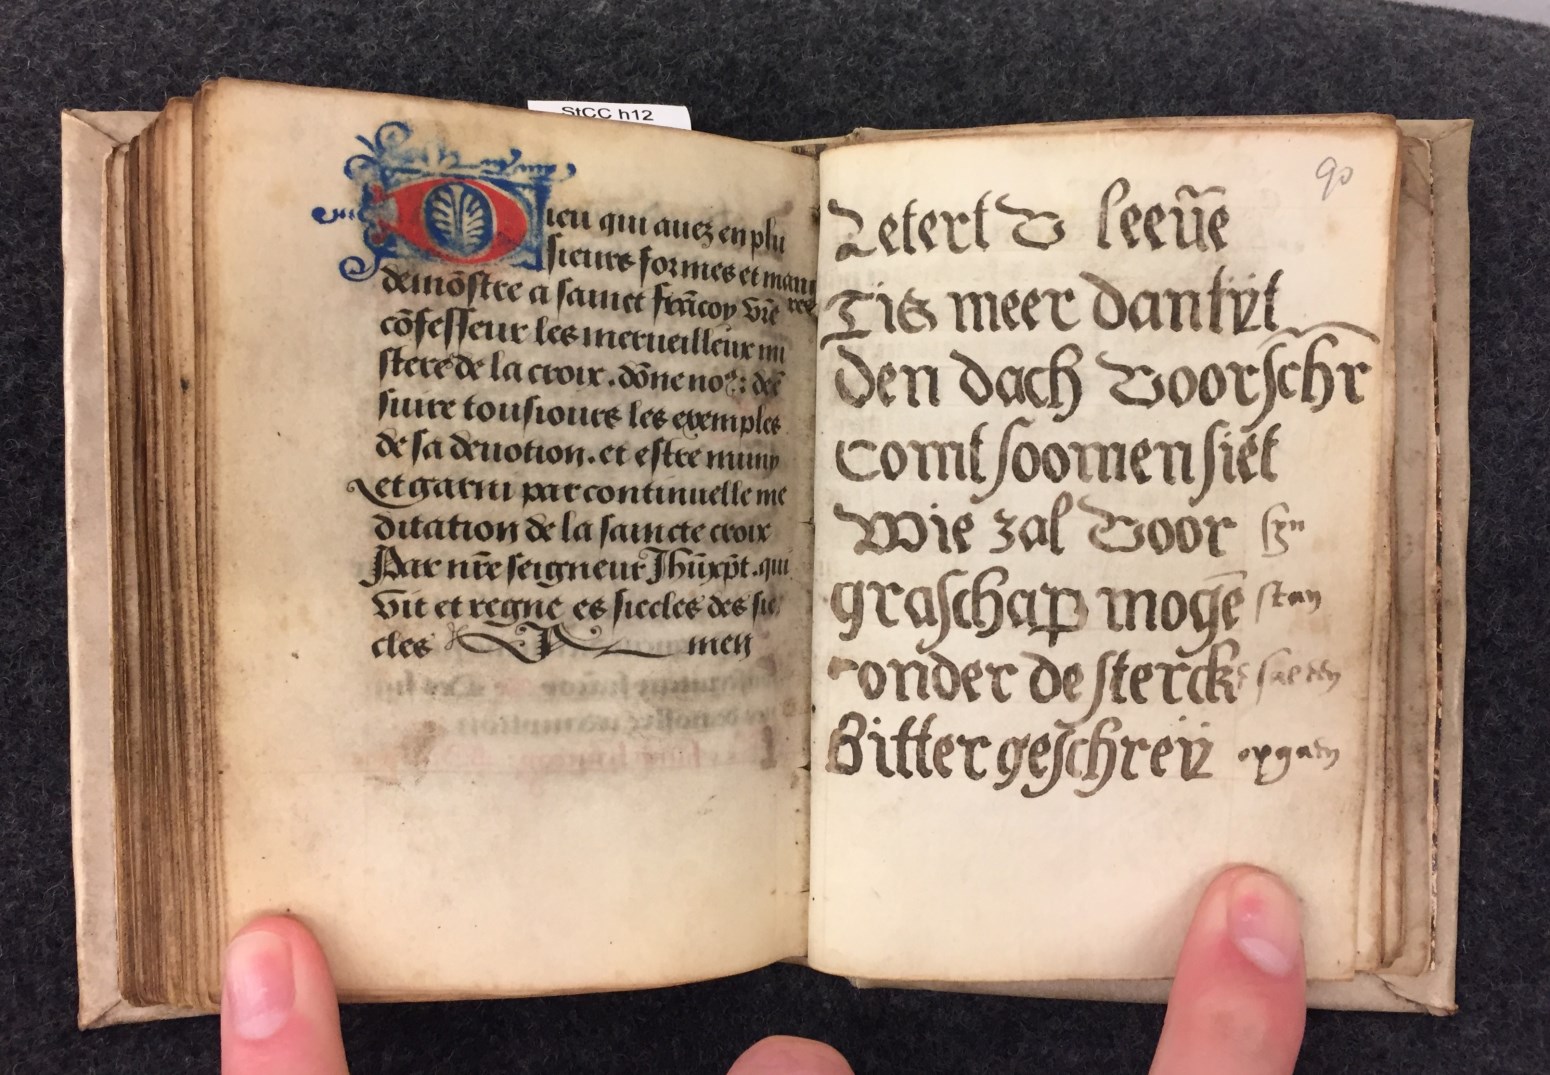 StCC h12
Dieu qui auez en plu
sieurs formes et mani
eres
demōstre a sainct frācoy vr̄e
cōfesseur les merueilleux mi
stere de la croix. dōne no⁹: de
suiure tousiours les exemples
de sa deuotion. et estre muny
et garni par continuelle me
ditation de la saincte croix
Par nr̄e seigneur Jhūxp̄t. qui
vit et regne es siecles des sie
cles Amen
90
Betert V leeūe
Tis meer dan tijt
Den dach Voorschr
Comt soo men siet
Wie zal Voor sijn
graschap mogē stan
sonder de sterck
Bitter geschreij opgaen